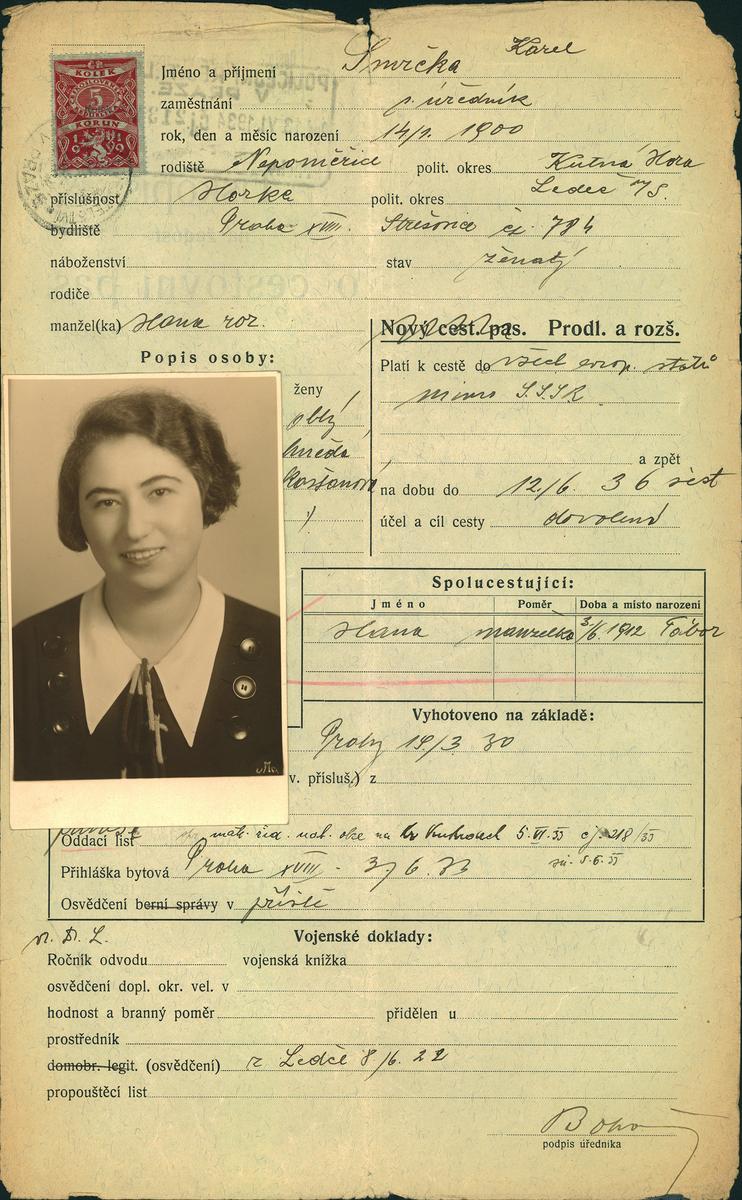 Karel
Jméno a příjmení Smrčka
zaměstnání p. úředník
rok, den a měsíc narození 14/1. 1900
rodiště Nepoměřice polit. okres Kutná Hora
příslušnost Horka polit. okres Ledeč n/S.
bydliště Praha XVIII. Střešovice čp. 784
náboženství stav ženatý
rodiče
manžel(ka) Hana roz.
Nový cest. pas. Prodl. a rozš.
Popis osoby:
Platí k cestě do všech evrop. států
mimo S.S.S.R.
ženy
oblý
hnědá
a zpět
na dobu do 12./6. 36
účel a cíl cesty dovolená
Spolucestující:
Jméno Poměr Doba a místo narození
Hana manželka 3/6. 1912 Tábor
Vyhotoveno na základě:
Prahy 19./3 30
v. přísluš.) z
Oddací list 5. VI. 33 čj. 218/33
Přihláška bytová Praha XVIII - 3/6. 33
Osvědčení berní správy v příští
Vojenské doklady:
Ročník odvodu vojenská knížka
osvědčení dopl. okr. vel. v
hodnost a branný poměr přidělen u
prostředník
domobr. legit. (osvědčení) z Ledče 8/6. 22
propouštěcí list
podpis úředníka
KOLEK
5
KORUN